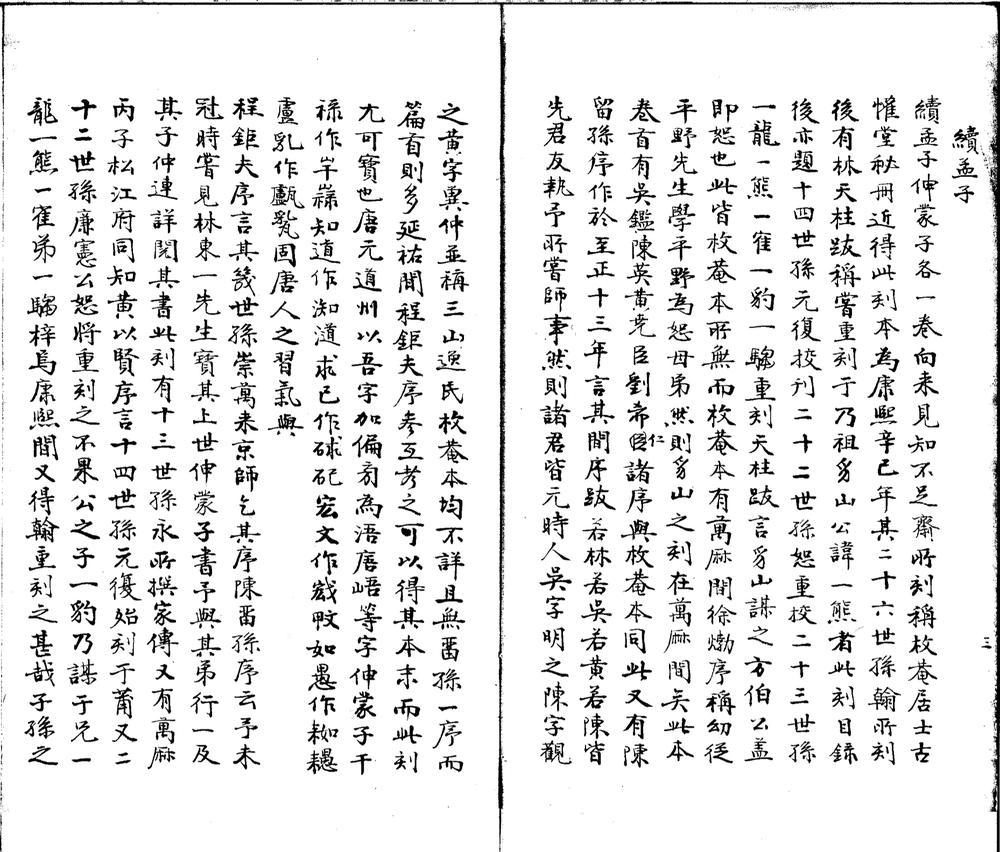 續孟子
續孟子伸蒙子各一卷向來見知不足齋所刻稱枚菴居士古
惟堂秘冊近得此刻本為康熙辛巳年其二十六世孫翰所刻
後有林天柱跋稱嘗重刻于乃祖豸山公諱一熊者此刻目錄
後亦題十四世孫元復校刊二十二世孫恕重校二十三世孫
一龍一熊一隺一豹一騶重刻天柱跋言豸山謀之方伯公蓋
即恕也此皆枚菴本所無而枚菴本有萬厤間徐㶿序稱幼從
平野先生學平野為恕母弟然則豸山之刻在萬厤間矣此本
卷首有吳鑑陳英黃堯臣劉希仁諸序與枚菴本同此又有陳
留孫序作於至正十三年言其間序跋若林若吳若黃若陳皆
先君友執予所嘗師事然則諸君皆元時人吳字明之陳字觀
之黃字異仲並稱三山逸民枚菴本均不詳且無畱孫一序而
篇首則多延祐間程鉅夫序參互考之可以得其本末而此刻
尤可寶也唐元道州以吾字加偏旁為浯㾄峿等字伸蒙子干
祿作䇂䘵知道作𣉻道求己作球玘宏文作䆖㪅如愚作㛂𥡴
盧乳作𤮧㲉固唐人之習氣與
程鉅夫序言其幾世孫崇萬來京師乞其序陳畱孫序云予未
冠時嘗見林東一先生寶其上世伸蒙子書予與其弟行一及
其子仲連詳閱其書此刻有十三世孫永所撰家傳又有萬厤
丙子松江府同知黃以賢序言十四世孫元復始刻于莆又二
十二世孫廉憲公恕將重刻之不果公之子一豹乃謀于兄一
龍一熊一隺弟一騶梓焉康熙間又得翰重刻之甚哉子孫之
三